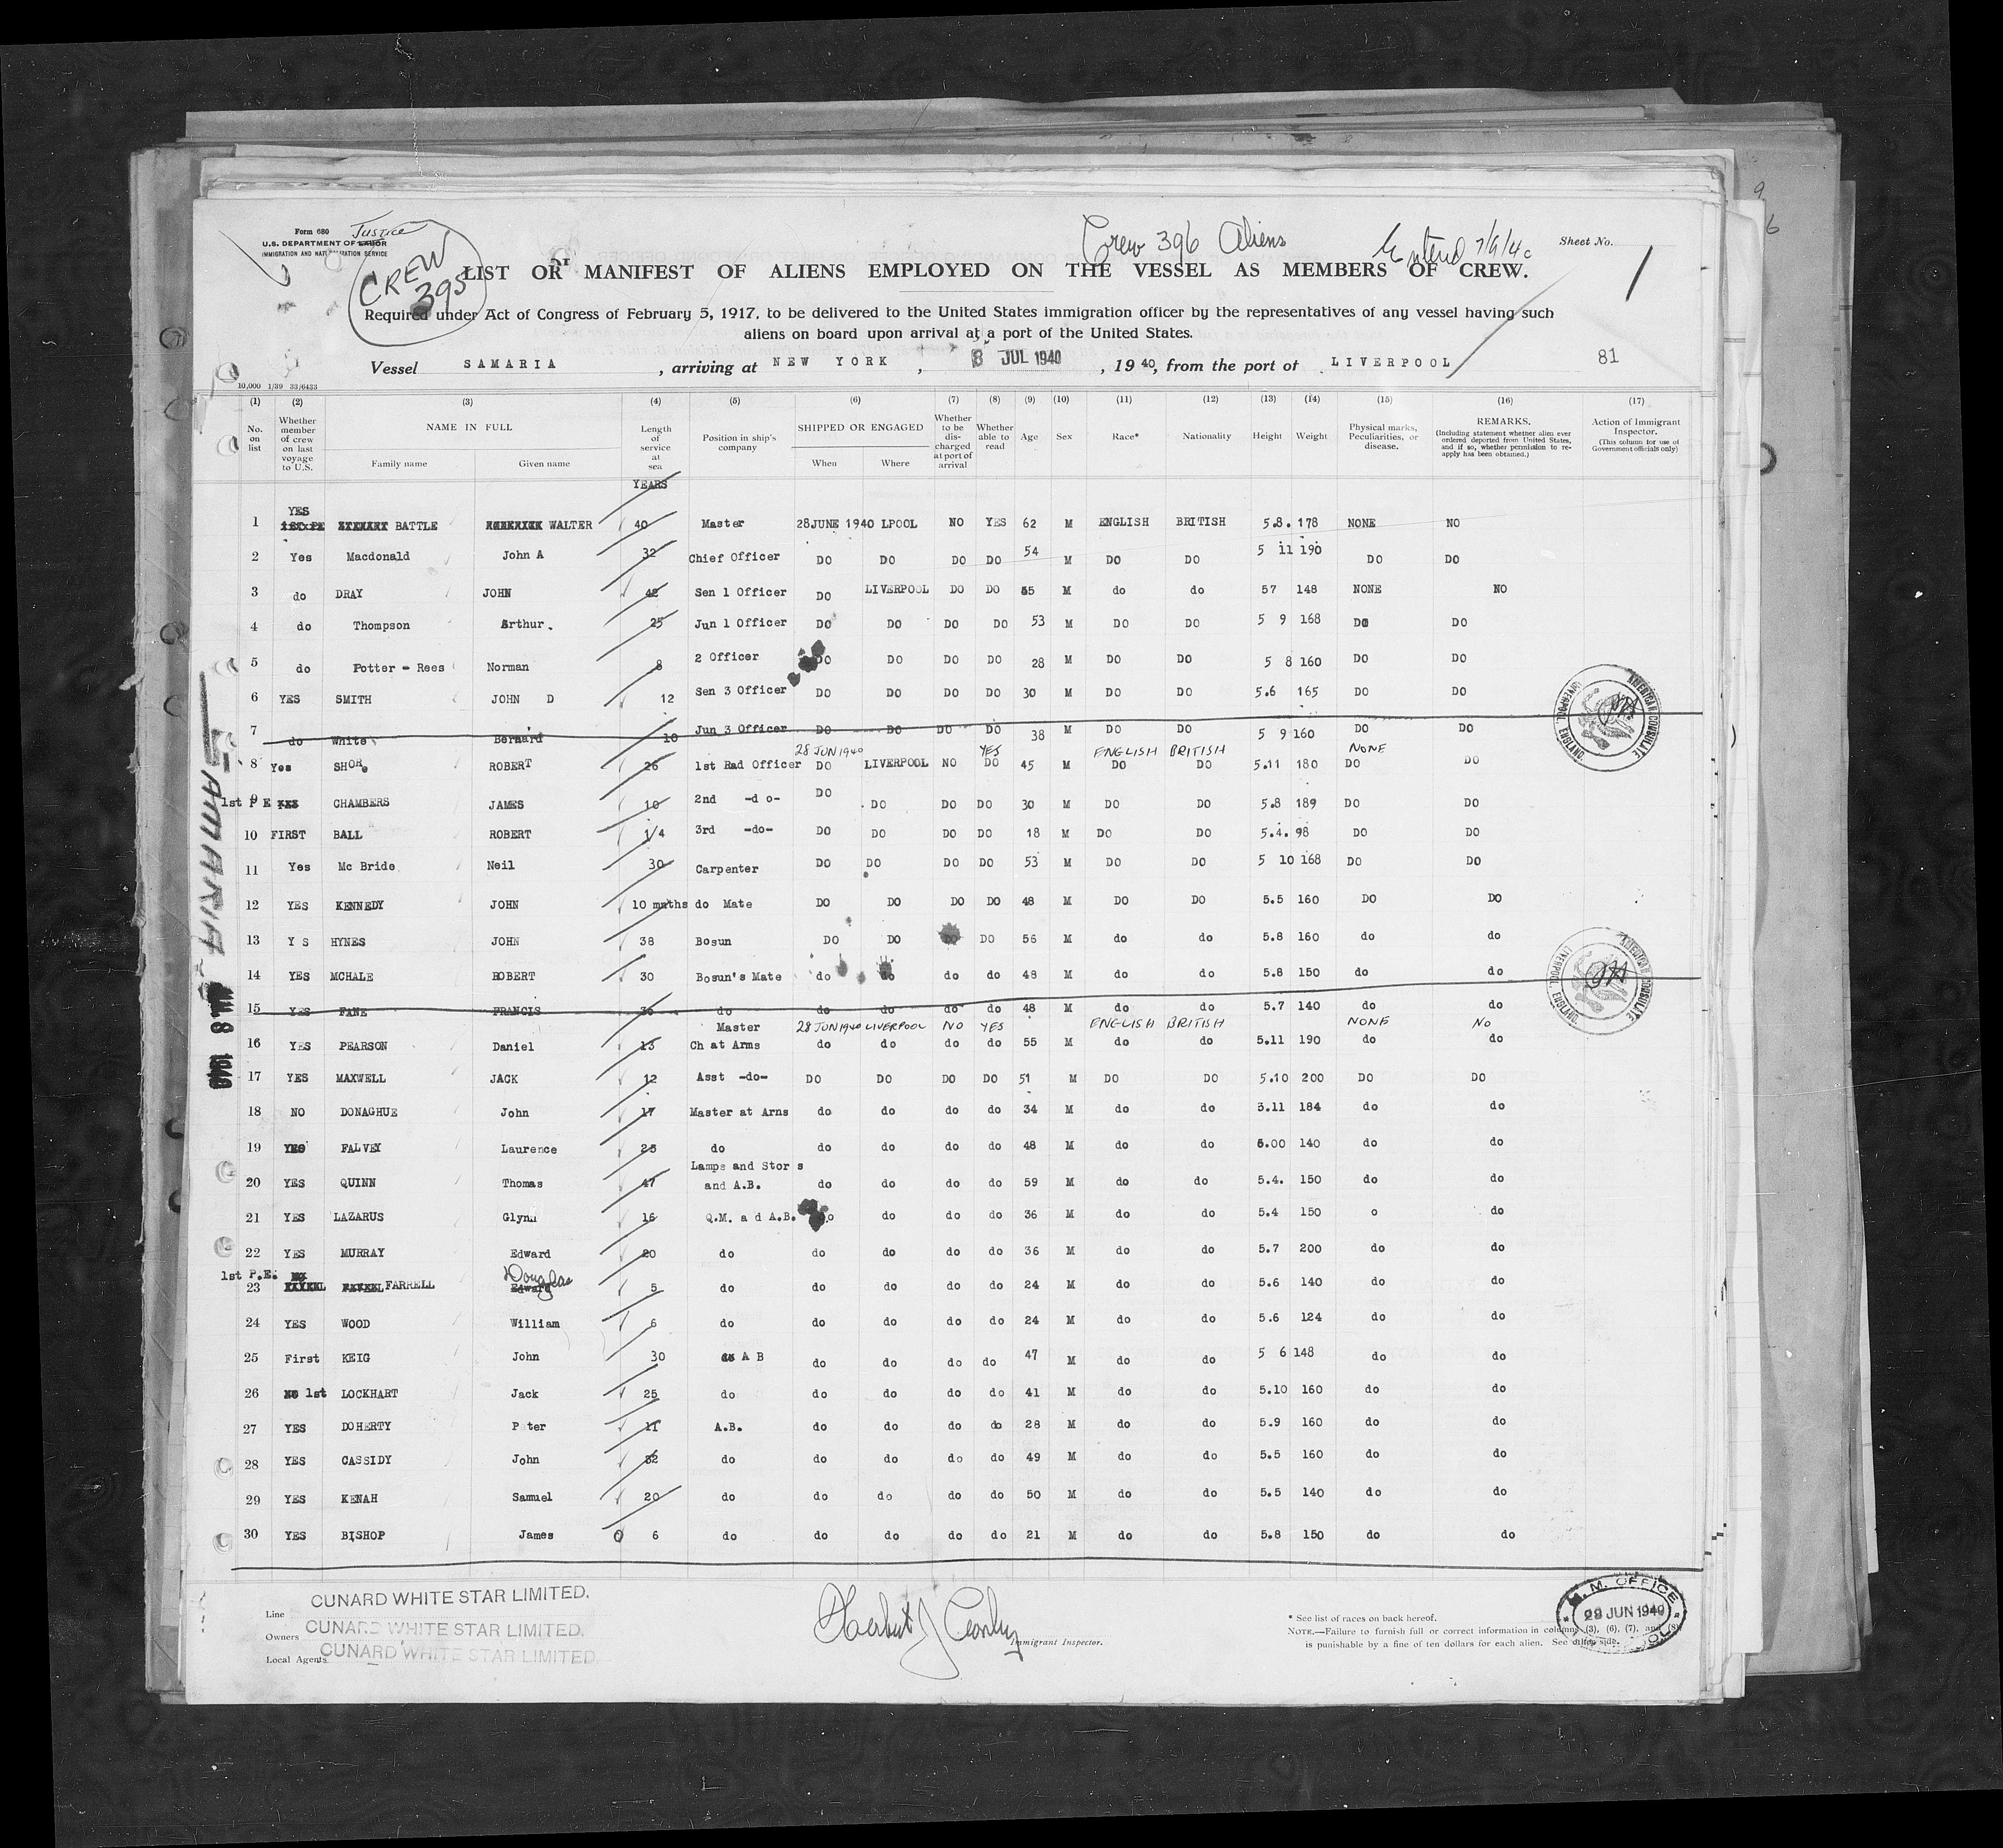 Form 680 Justice
U.S. DEPARTMENT OF LABOR
IMMIGRATION AND NATURALIZATION SERVICE
CREW
395
Crew 396 Aliens
Entered 7/9/40
Sheet No. 1
LIST OR MANIFEST OF ALIENS EMPLOYED ON THE VESSEL AS MEMBERS OF CREW.
Required under Act of Congress of February 5, 1917, to be delivered to the United States immigration officer by the representatives of any vessel having such
aliens on board upon arrival at a port of the United States.
Vessel SAMARIA, arriving at NEW YORK, 8 JUL 1940, 1940, from the port of LIVERPOOL 81
10,000 1/39 33/6433
(1) (2) (3) (4) (5) (6) (7) (8) (9) (10) (11) (12) (13) (14) (15) (16) (17)
No. on list
Whether member of crew on last voyage to U.S.
NAME IN FULL
Family name Given name
Length of service at sea
Position in ship's company
SHIPPED OR ENGAGED
When Where
Whether to be discharged at port of arrival
Whether able to read
Age
Sex
Race*
Nationality
Height
Weight
Physical marks, Peculiarities, or disease.
REMARKS.
(Including statement whether alien ever ordered deported from United States, and if so, whether permission to re-apply has been obtained.)
Action of Immigrant Inspector.
(This column for use of Government officials only)
YEARS
1 YES BATTLE WALTER 40 Master 28JUNE 1940 LPOOL NO YES 62 M ENGLISH BRITISH 5.8. 178 NONE NO
2 Yes Macdonald John A 32 Chief Officer DO DO DO DO 54 M DO DO 5 11 190 DO DO
3 do DRAY JOHN 42 Sen 1 Officer DO LIVERPOOL DO DO 55 M do do 57 148 NONE NO
4 do Thompson Arthur. 25 Jun 1 Officer DO DO DO DO 53 M DO DO 5 9 168 DO DO
5 do Potter - Rees Norman 8 2 Officer DO DO DO DO 28 M DO DO 5 8 160 DO DO
6 YES SMITH JOHN D 12 Sen 3 Officer DO DO DO DO 30 M DO DO 5.6 165 DO DO
7 do White Bernard 10 Jun 3 Officer DO DO DO DO 38 M DO DO 5 9 160 DO DO
28 JUN 1940 YES ENGLISH BRITISH NONE
8 Yes SHORe ROBERT 26 1st Rad Officer DO LIVERPOOL NO DO 45 M DO DO 5.11 180 DO DO
9 1st P E YES CHAMBERS JAMES 10 2nd -d o- DO DO DO DO 30 M DO DO 5.8 189 DO DO
10 FIRST BALL ROBERT 1/4 3rd -do- DO DO DO DO 18 M DO DO 5.4. 98 DO DO
11 Yes Mc Bride Neil 30 Carpenter DO DO DO DO 53 M DO DO 5 10 168 DO DO
12 YES KENNEDY JOHN 10 mnths do Mate DO DO DO DO 48 M DO DO 5.5 160 DO DO
13 Y S HYNES JOHN 38 Bosun DO DO DO DO 56 M do do 5.8 160 do do
14 YES MCHALE ROBERT 30 Bosun's Mate do do do do 48 M do do 5.8 150 do do
15 YES FANE FRANCIS 36 do do do do do 48 M do do 5.7 140 do do
Master 28 JUN 1940 LIVERPOOL NO YES ENGLISH BRITISH NONE No
16 YES PEARSON Daniel 13 Ch at Arms do do do do 55 M do do 5.11 190 do do
17 YES MAXWELL JACK 12 Asst -do- DO DO DO DO 51 M DO DO 5.10 200 DO DO
18 NO DONAGHUE John 17 Master at Arns do do do do 34 M do do 3.11 184 do do
19 YES FALVEY Laurence 25 do do do do do 48 M do do 5.00 140 do do
Lamps and Stor s
20 YES QUINN Thomas 47 and A.B. do do do do 59 M do do 5.4. 150 do do
21 YES LAZARUS Glynn 16 Q.M. a d A.B. do do do do 36 M do do 5.4 150 o do
22 YES MURRAY Edward 20 do do do do do 36 M do do 5.7 200 do do
1st P.E. NO Douglas
23 FARRELL Edward 5 do do do do do 24 M do do 5.6 140 do do
24 YES WOOD William 6 do do do do do 24 M do do 5.6 124 do do
25 First KEIG John 30 A B do do do do 47 M do do 5 6 148 do do
26 NO 1st LOCKHART Jack 25 do do do do do 41 M do do 5.10 160 do do
27 YES DOHERTY P ter 11 A.B. do do do do 28 M do do 5.9 160 do do
28 YES CASSIDY John 32 do do do do do 49 M do do 5.5 160 do do
29 YES KENAH Samuel 20 do do do do do 50 M do do 5.5 140 do do
30 YES BISHOP James 6 do do do do do 21 M do do 5.8 150 do do
SAMARIA
JUL 8 1940
AMERICAN CONSULATE
LIVERPOOL, ENGLAND
AMERICAN CONSULATE
LIVERPOOL, ENGLAND
Line CUNARD WHITE STAR LIMITED.
Owners CUNARD WHITE STAR LIMITED.
Local Agents CUNARD WHITE STAR LIMITED.
Immigrant Inspector.
* See list of races on back hereof.
NOTE.—Failure to furnish full or correct information in columns (3), (6), (7), and (8)
is punishable by a fine of ten dollars for each alien. See other side.
M.M. OFFICE
29 JUN 1940